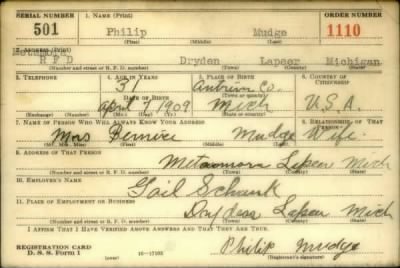 SERIAL NUMBER 1. NAME (Print) ORDER NUMBER
501 Philip Mudge 1110
(First) (Middle) (Last)
2. ADDRESS (Print)
R F D Dryden Lapeer Michigan
(Number and street or R. F. D. number) (Town) (County) (State)
3. TELEPHONE 4. AGE IN YEARS 5. PLACE OF BIRTH 6. COUNTRY OF CITIZENSHIP
31 Antrim Co.
DATE OF BIRTH (Town or county)
April 7 1909 Mich U.S.A.
(Exchange) (Number) (Mo.) (Day) (Yr.) (State or country)
7. NAME OF PERSON WHO WILL ALWAYS KNOW YOUR ADDRESS 8. RELATIONSHIP OF THAT PERSON
Mrs Bernice Mudge Wife
(Mr., Mrs., Miss) (First) (Middle) (Last)
9. ADDRESS OF THAT PERSON
Metamora Lapeer Mich
(Number and street or R. F. D. number) (Town) (County) (State)
10. EMPLOYER'S NAME
Gail Schank
11. PLACE OF EMPLOYMENT OR BUSINESS
Dryden Lapeer Mich
(Number and street or R. F. D. number) (Town) (County) (State)
I AFFIRM THAT I HAVE VERIFIED ABOVE ANSWERS AND THAT THEY ARE TRUE.
REGISTRATION CARD
D. S. S. Form 1 16-17105 Philip Mudge
(Registrant's signature)